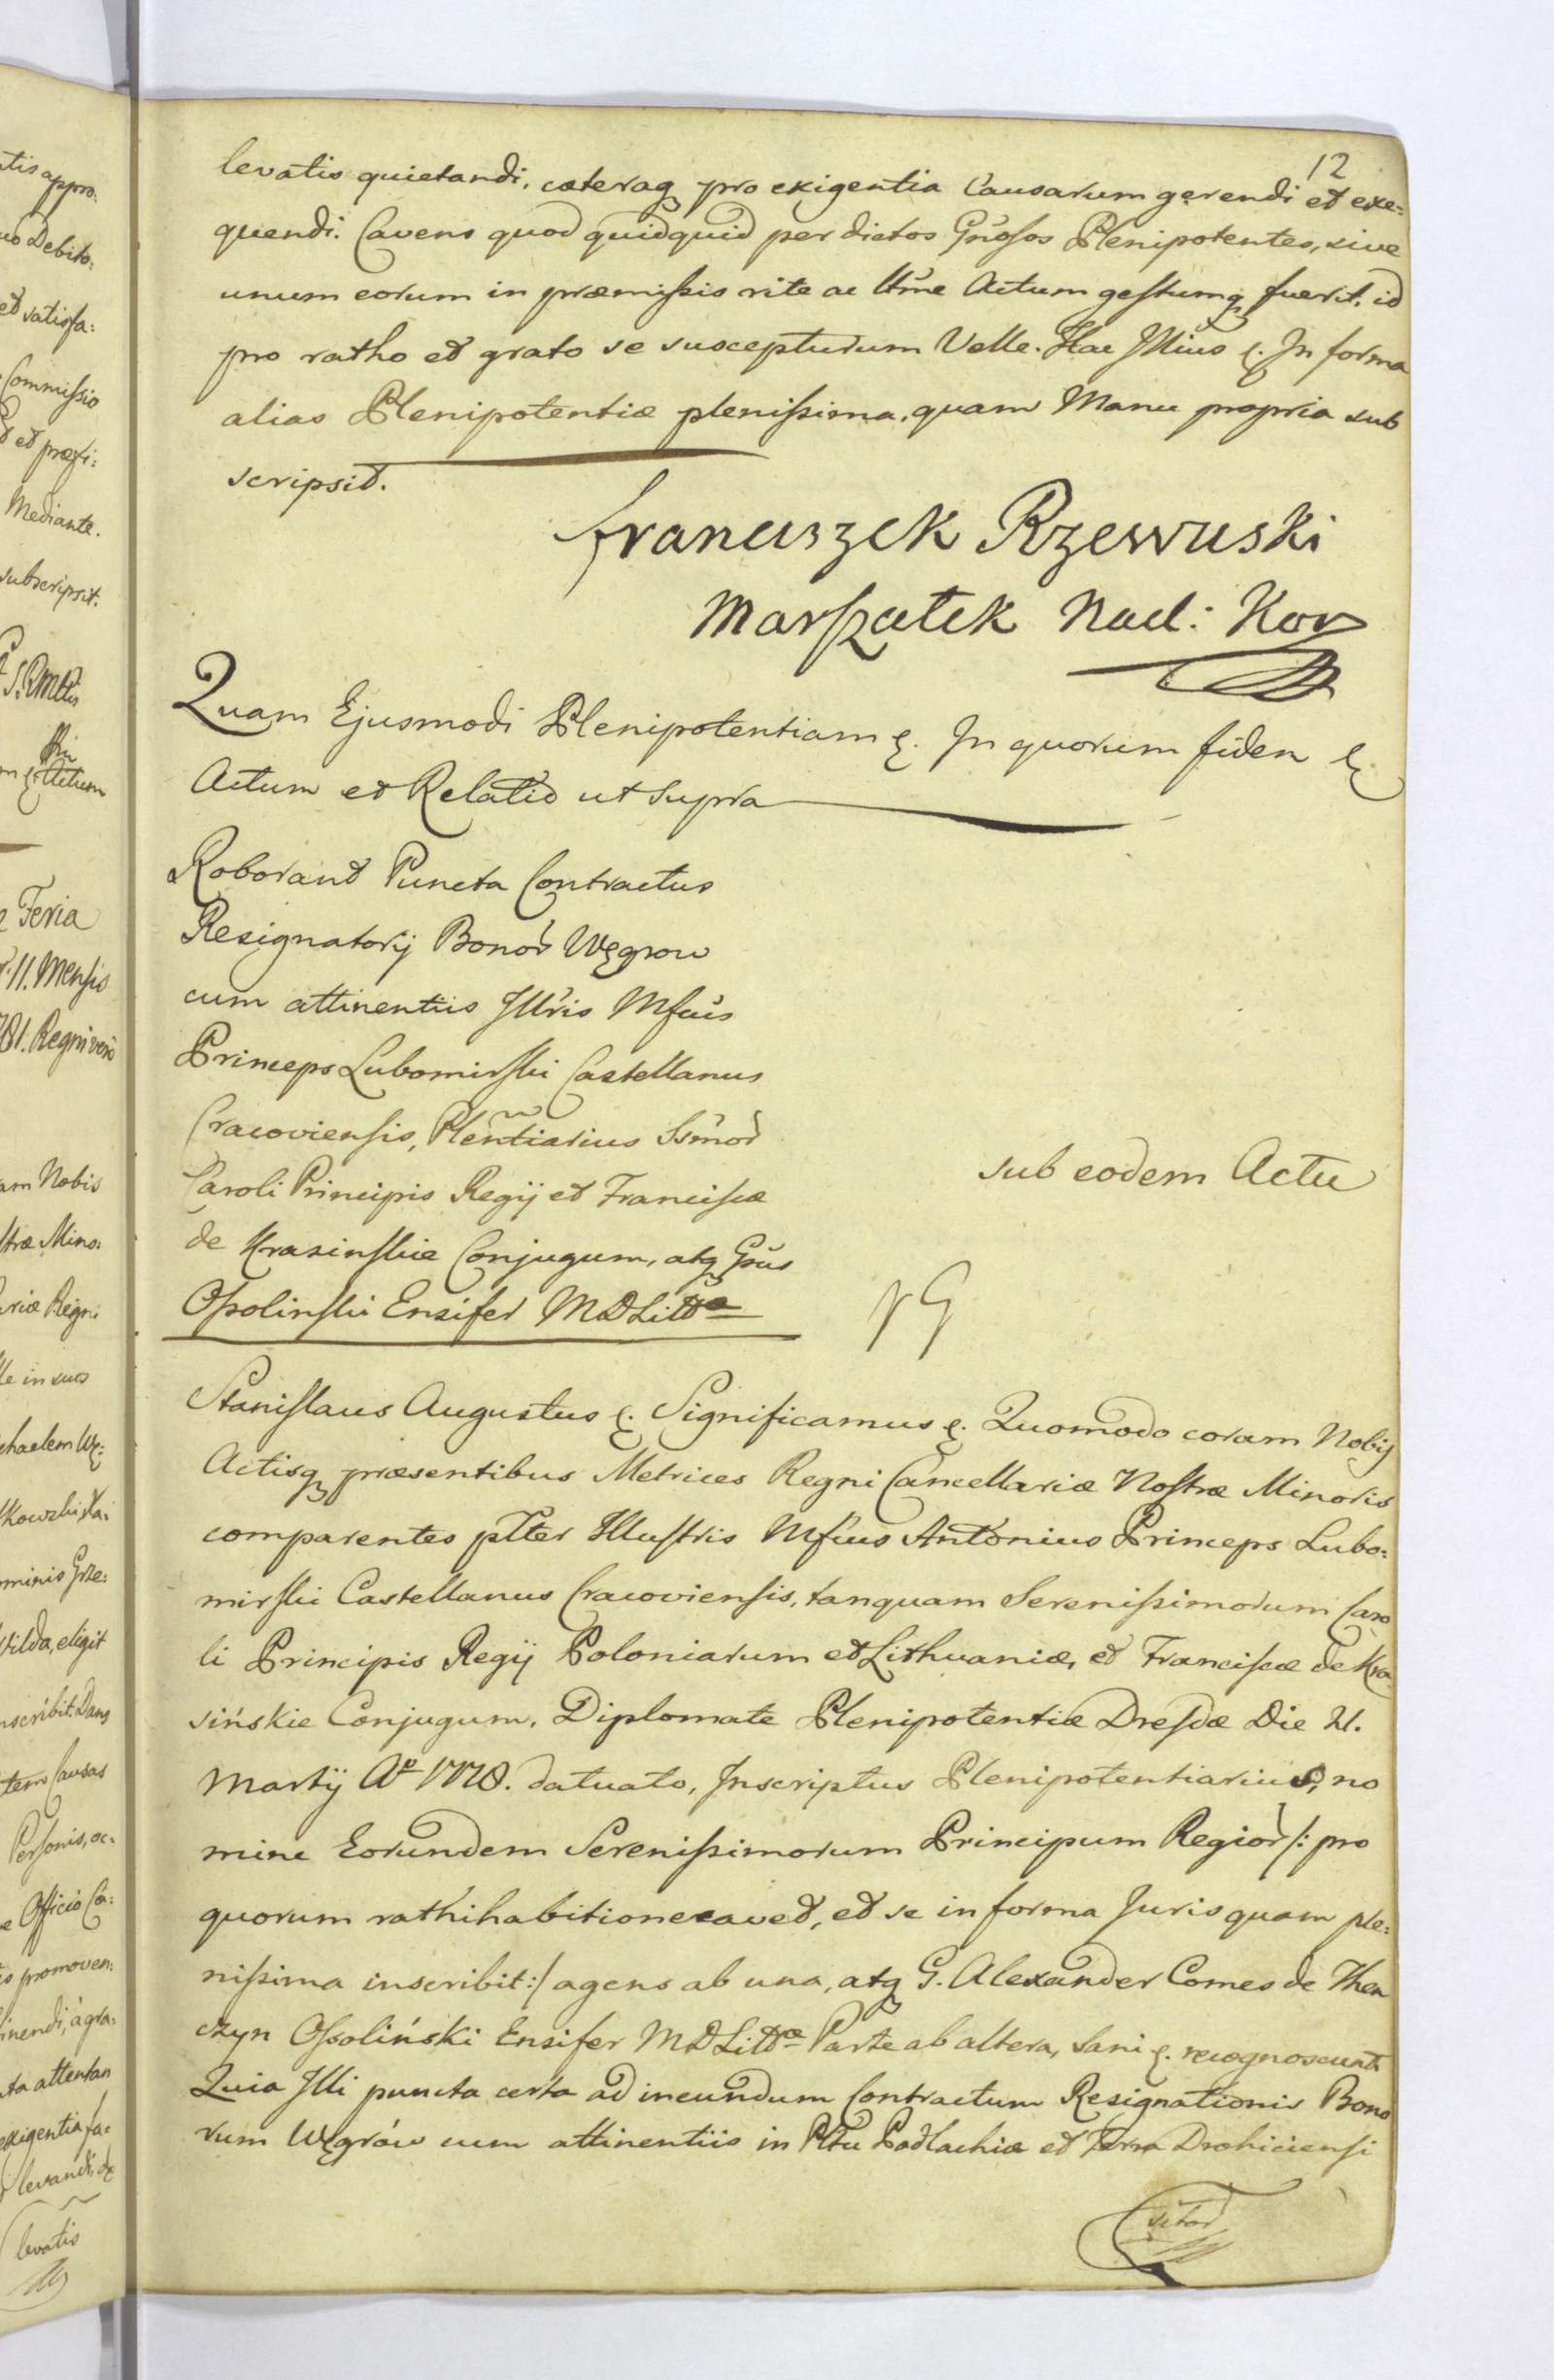 12
levatis quietandi, cæteraq3 pro exigentia Causarum gerendi et exe=
quendi. Cavens quod quidquid per dictos Gnosos Plenipotentes, sive
unum eorum in præmissis rite ac lttme Actum gestumq3 fuerit, id
pro ratho et grato se suscepturum Velle. Hac Illius &. In forma
alias Plenipotentiæ plenissima, quam Manu propria sub
scripsit.
Franciszek Rzewuski
Marszałek Nad: Kor
Quam Ejusmodi Plenipotentiam &. In quorum fidem &.
Actum et Relatio ut supra
Roborant Puncta Contractus
Resignatorij Bonor Węgrow
cum attinentiis Illris Mfcus
Princeps Lubomirski Castellanus
Cracoviensis, Plentiarius Ssmor
Caroli Principis Regij et Franciscæ
de Krasinskie Conjugum, atq3 Gsus
Ossolinski Ensifer M D Littæ
sub eodem Actu
Stanislaus Augustus &. Significamus &. Quomodo coram Nobis
Actisq3 præsentibus Metrices Regni Cancellariæ Nostræ Minoris
comparentes plter Illustris Mfcus Antonius Princeps Lubo=
mirski Castellanus Cracoviensis, tanquam Serenissimorum Caro
li Principis Regij Poloniarum et Lithuaniæ, et Franciscæ de Kra
sińskie Conjugum, Diplomate Plenipotentiæ Dresdæ Die 21.
Martij Ao 1778. datuato, Inscriptus Plenipotentiarius, no
mine Eorundem Serenissimorum Principum Regior /: pro
quorum rathihabitione cavet, et se in forma Juris quam ple=
nissima inscribit :/ agens ab una, atq3 G. Alexander Comes de Then
czyn Ossoliński Ensifer M D Littæ Parte ab altera, Sani &. recognoscunt
Quia Illi puncta certa ad ineundum Contractum Resignationis Bono
rum Węgrów cum attinentiis in Pltu Podlachiæ et Terra Drohiciensi
sitor